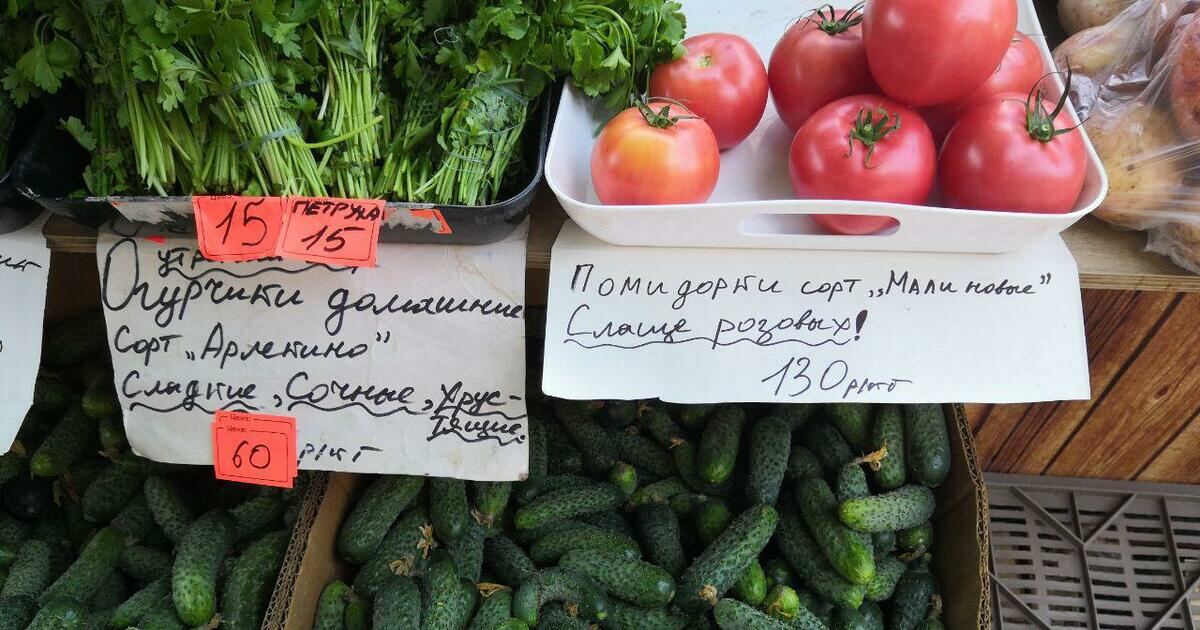 15
ПЕТРУХА
15
Огурчики домашние
Сорт „Арлекино”
Сладкие, Сочные, Хрус-
тящие.
Цена:
Цена:
60 р/кг
Помидорки сорт „Малиновые”
Слаще розовых!
130 р/кг